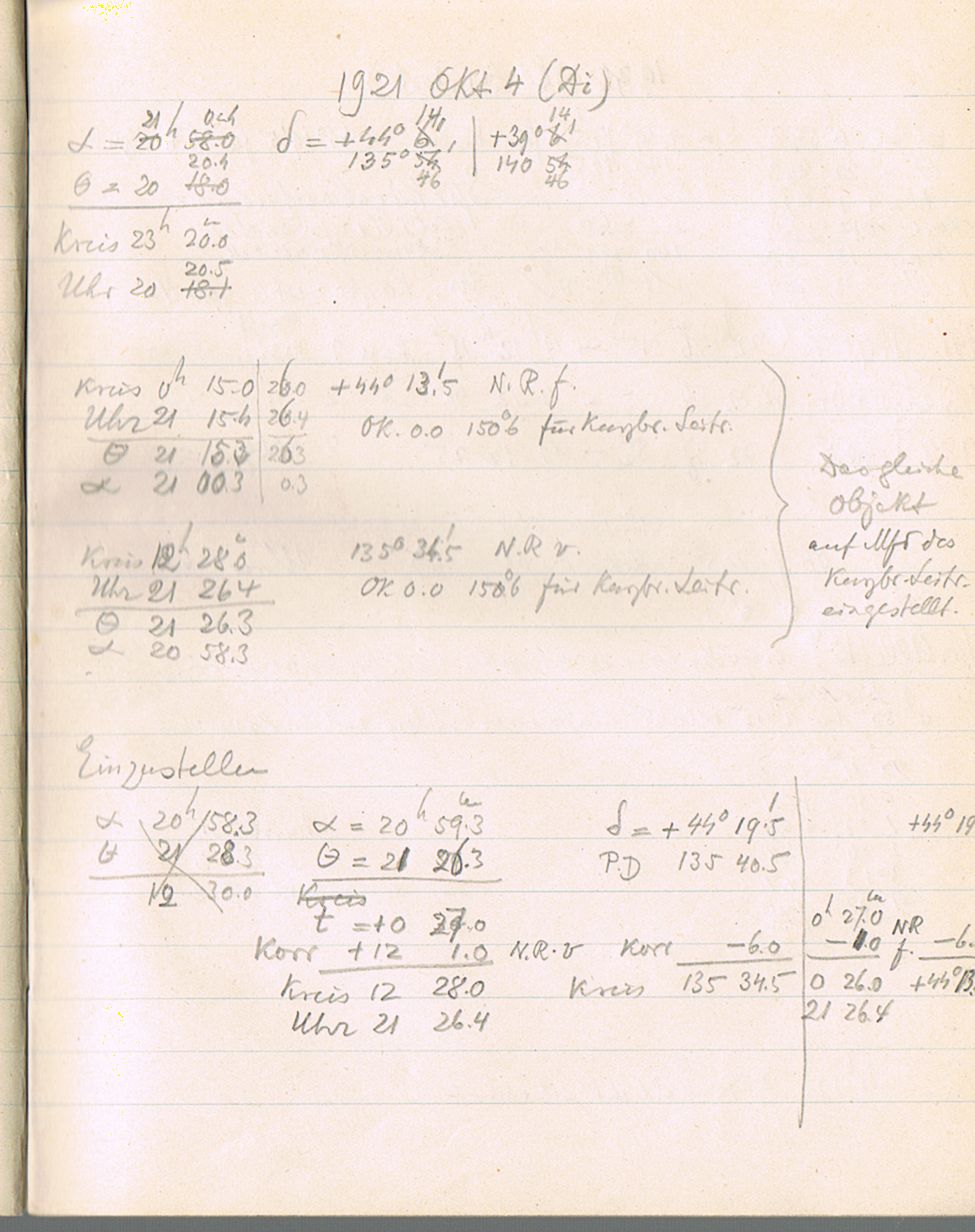 1921 Okt 4 (Di)
21 0.4
α = 20 h 58.0 δ = +44° 6' | +39° 6'
14 14
20.4 135° 54 140 54
θ = 20 18.0 46 46
Kreis 23 h 20.0 m
20.5
Uhr 20 18.1
Kreis 0 h 15.0 | 26.0 +44° 13.'5 N.R.f.
Uhr 21 15.4 | 26.4 OK. 0.0 150°6 für Kurzbr. Leitr.
θ 21 15.3 | 26.3
α 21 00.3 | 0.3
Das gleiche
Objekt
auf Mfd des
Kurzbr. Leitr.
eingestellt.
Kreis 12 h 28.0 135° 34.'5 N.R v.
Uhr 21 26.4 OK 0.0 150°6 für Kurzbr. Leitr.
θ 21 26.3
α 20 58.3
Einzustellen
α 20 h 58.3 α = 20 h 59.3 m δ = +44° 19.'5 +44° 19
θ 21 28.3 θ = 21 26.3 PD 135 40.5
12 30.0 Kreis
t = +0 27.0 0 h 27.0 m NR
Korr +12 1.0 N.R.v Korr -6.0 -1.0 f. -6.
Kreis 12 28.0 Kreis 135 34.5 0 26.0 +44° 13.
Uhr 21 26.4 21 26.4